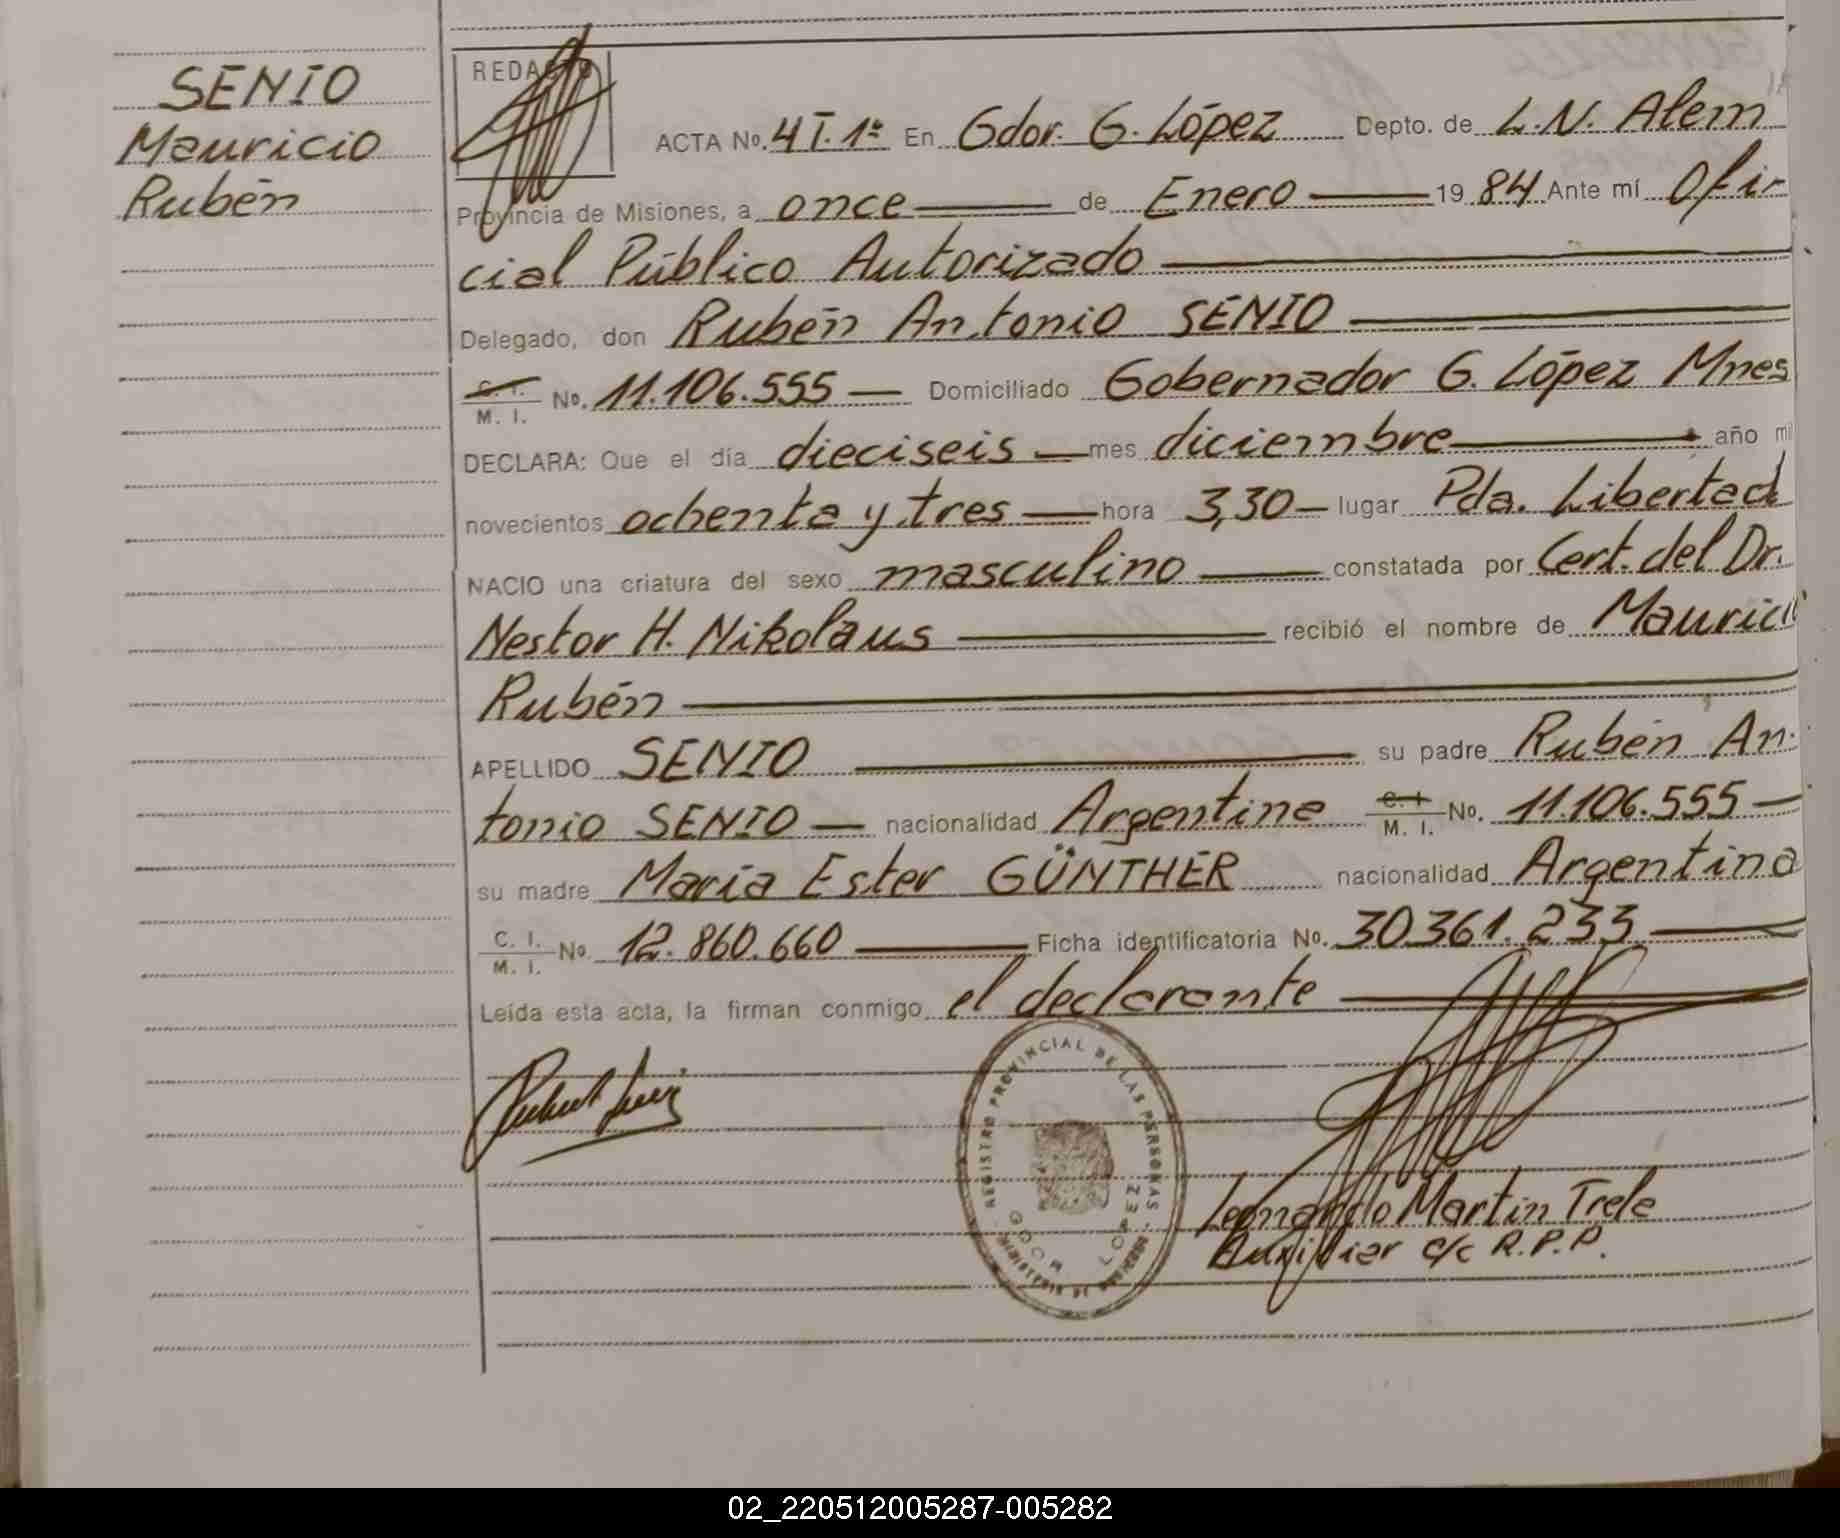 SENIO
Mauricio
Rubén
REDACTO
ACTA No. 4 T. 1º En Gdor. G. López Depto. de L.N. Alem
Provincia de Misiones, a once de Enero 1984 Ante mí Ofi-
cial Público Autorizado
Delegado, don Rubén Antonio SENIO
C. I. / M. I. No. 11.106.555 — Domiciliado Gobernador G. López Mnes
DECLARA: Que el día dieciseis — mes diciembre año mil
novecientos ochenta y tres — hora 3,30 — lugar Pda. Libertad
NACIO una criatura del sexo masculino — constatada por Cert. del Dr.
Nestor H. Nikolaus — recibió el nombre de Mauricio
Rubén
APELLIDO SENIO su padre Rubén An-
tonio SENIO — nacionalidad Argentina C. I / M. I. No. 11.106.555 —
su madre María Ester GÜNTHER nacionalidad Argentina
C. I. / M. I. No. 12.860.660 — Ficha identificatoria No. 30361.233 —
Leída esta acta, la firman conmigo el declarante
REGISTRO PROVINCIAL DE LAS PERSONAS
GDOR LOPEZ
Leonardo Martin Trele
Auxiliar c/c R.P.P.
02_220512005287-005282